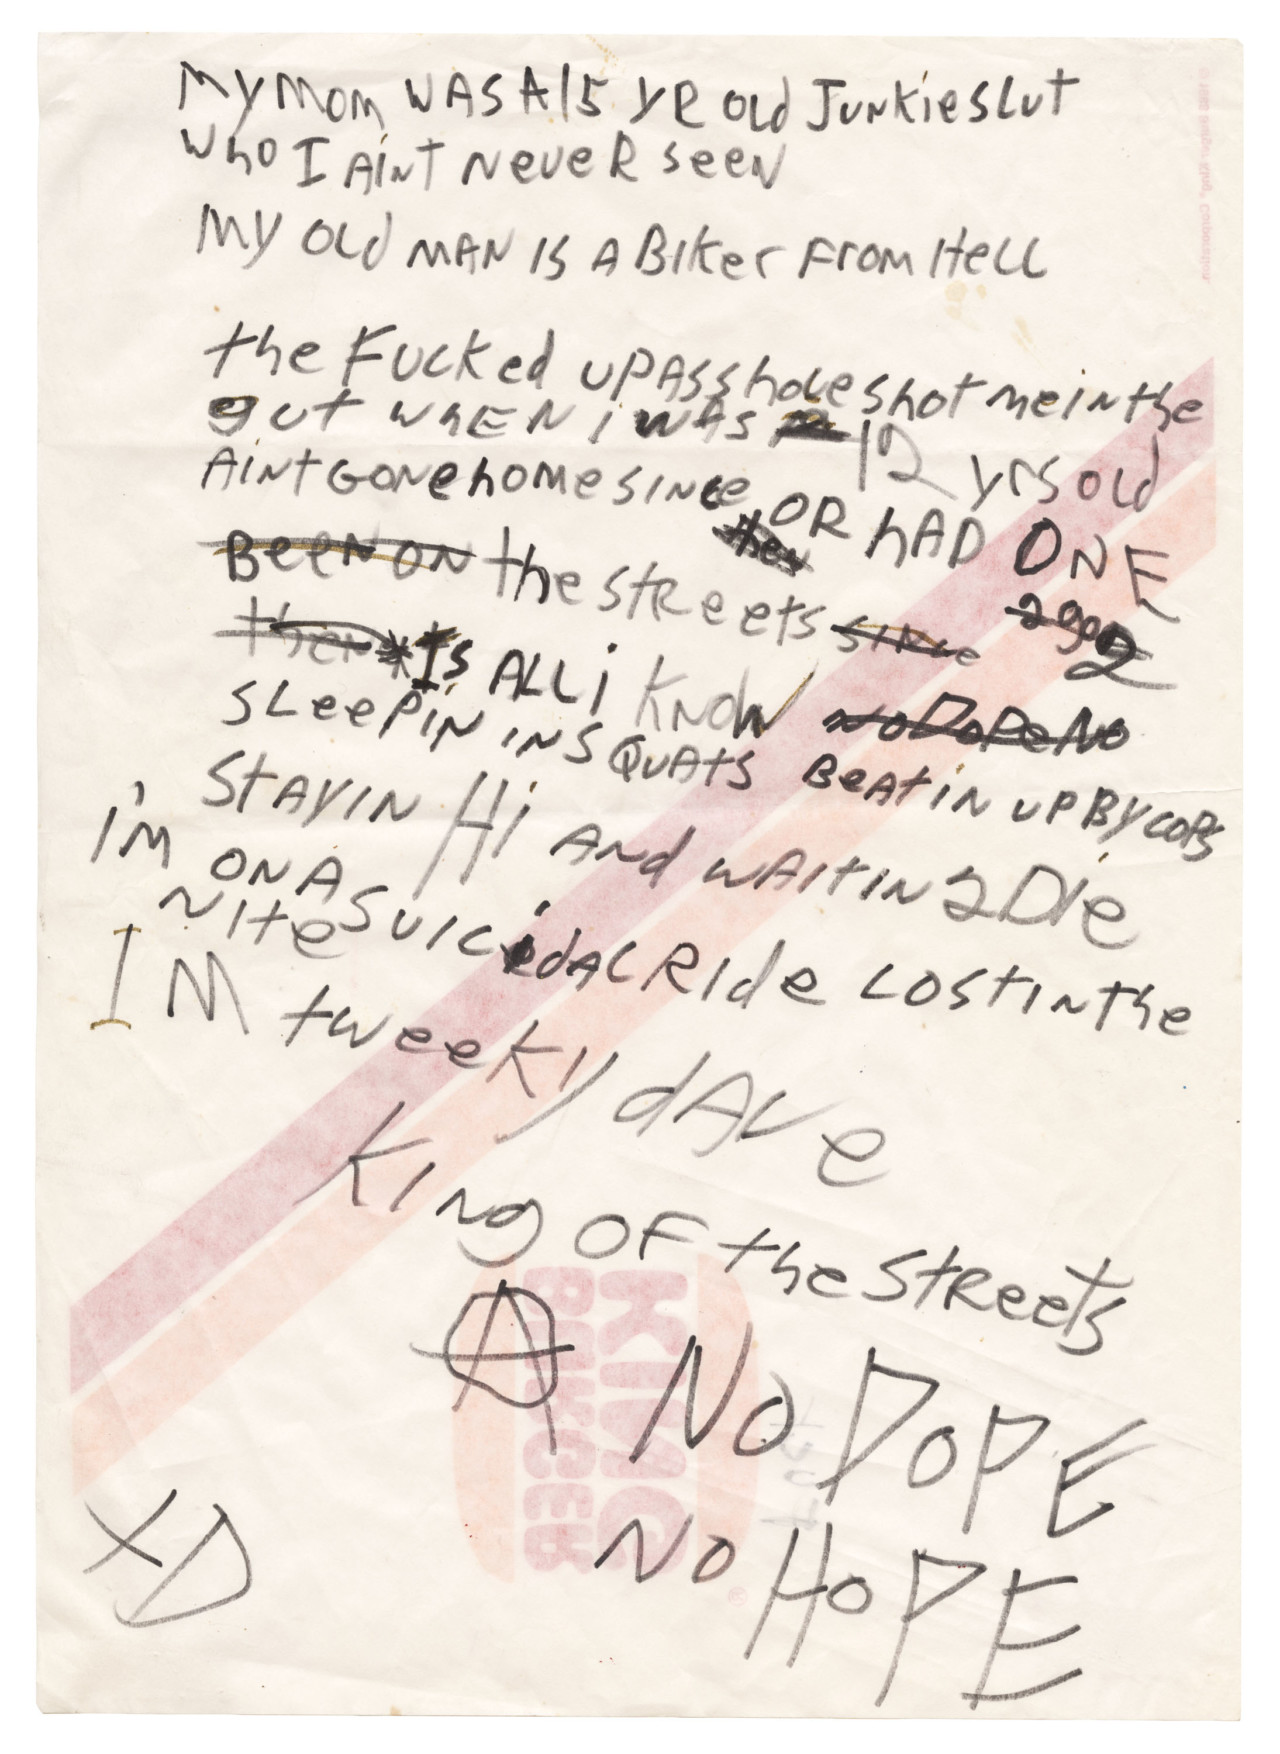 My Mom WAS A 15 YR Old Junkie slut
who I AiNT NeveR seen
My Old MAN IS A BIKer From Hell
the Fucked UP Asshole shot me in the
gut whEN i WAS 12 yrs old
AiNT GONe home since OR hAD ONE
BeeN ON the stReets since 2 go 2
then * Is ALL i KNOW NO DoPe No
SLeePiN iN SQuAts BeAtiN uP BY COPs
StAYiN Hi ANd wAitiN 2 Die
i'm ON A SuicidAL Ride LOST iN the
Nite
I'M tweeky dAve
KiNg OF the StReets
A NO DOPE
NO HOPE
XD
KING
BURGER
®
© 1985 Burger King® Corporation.